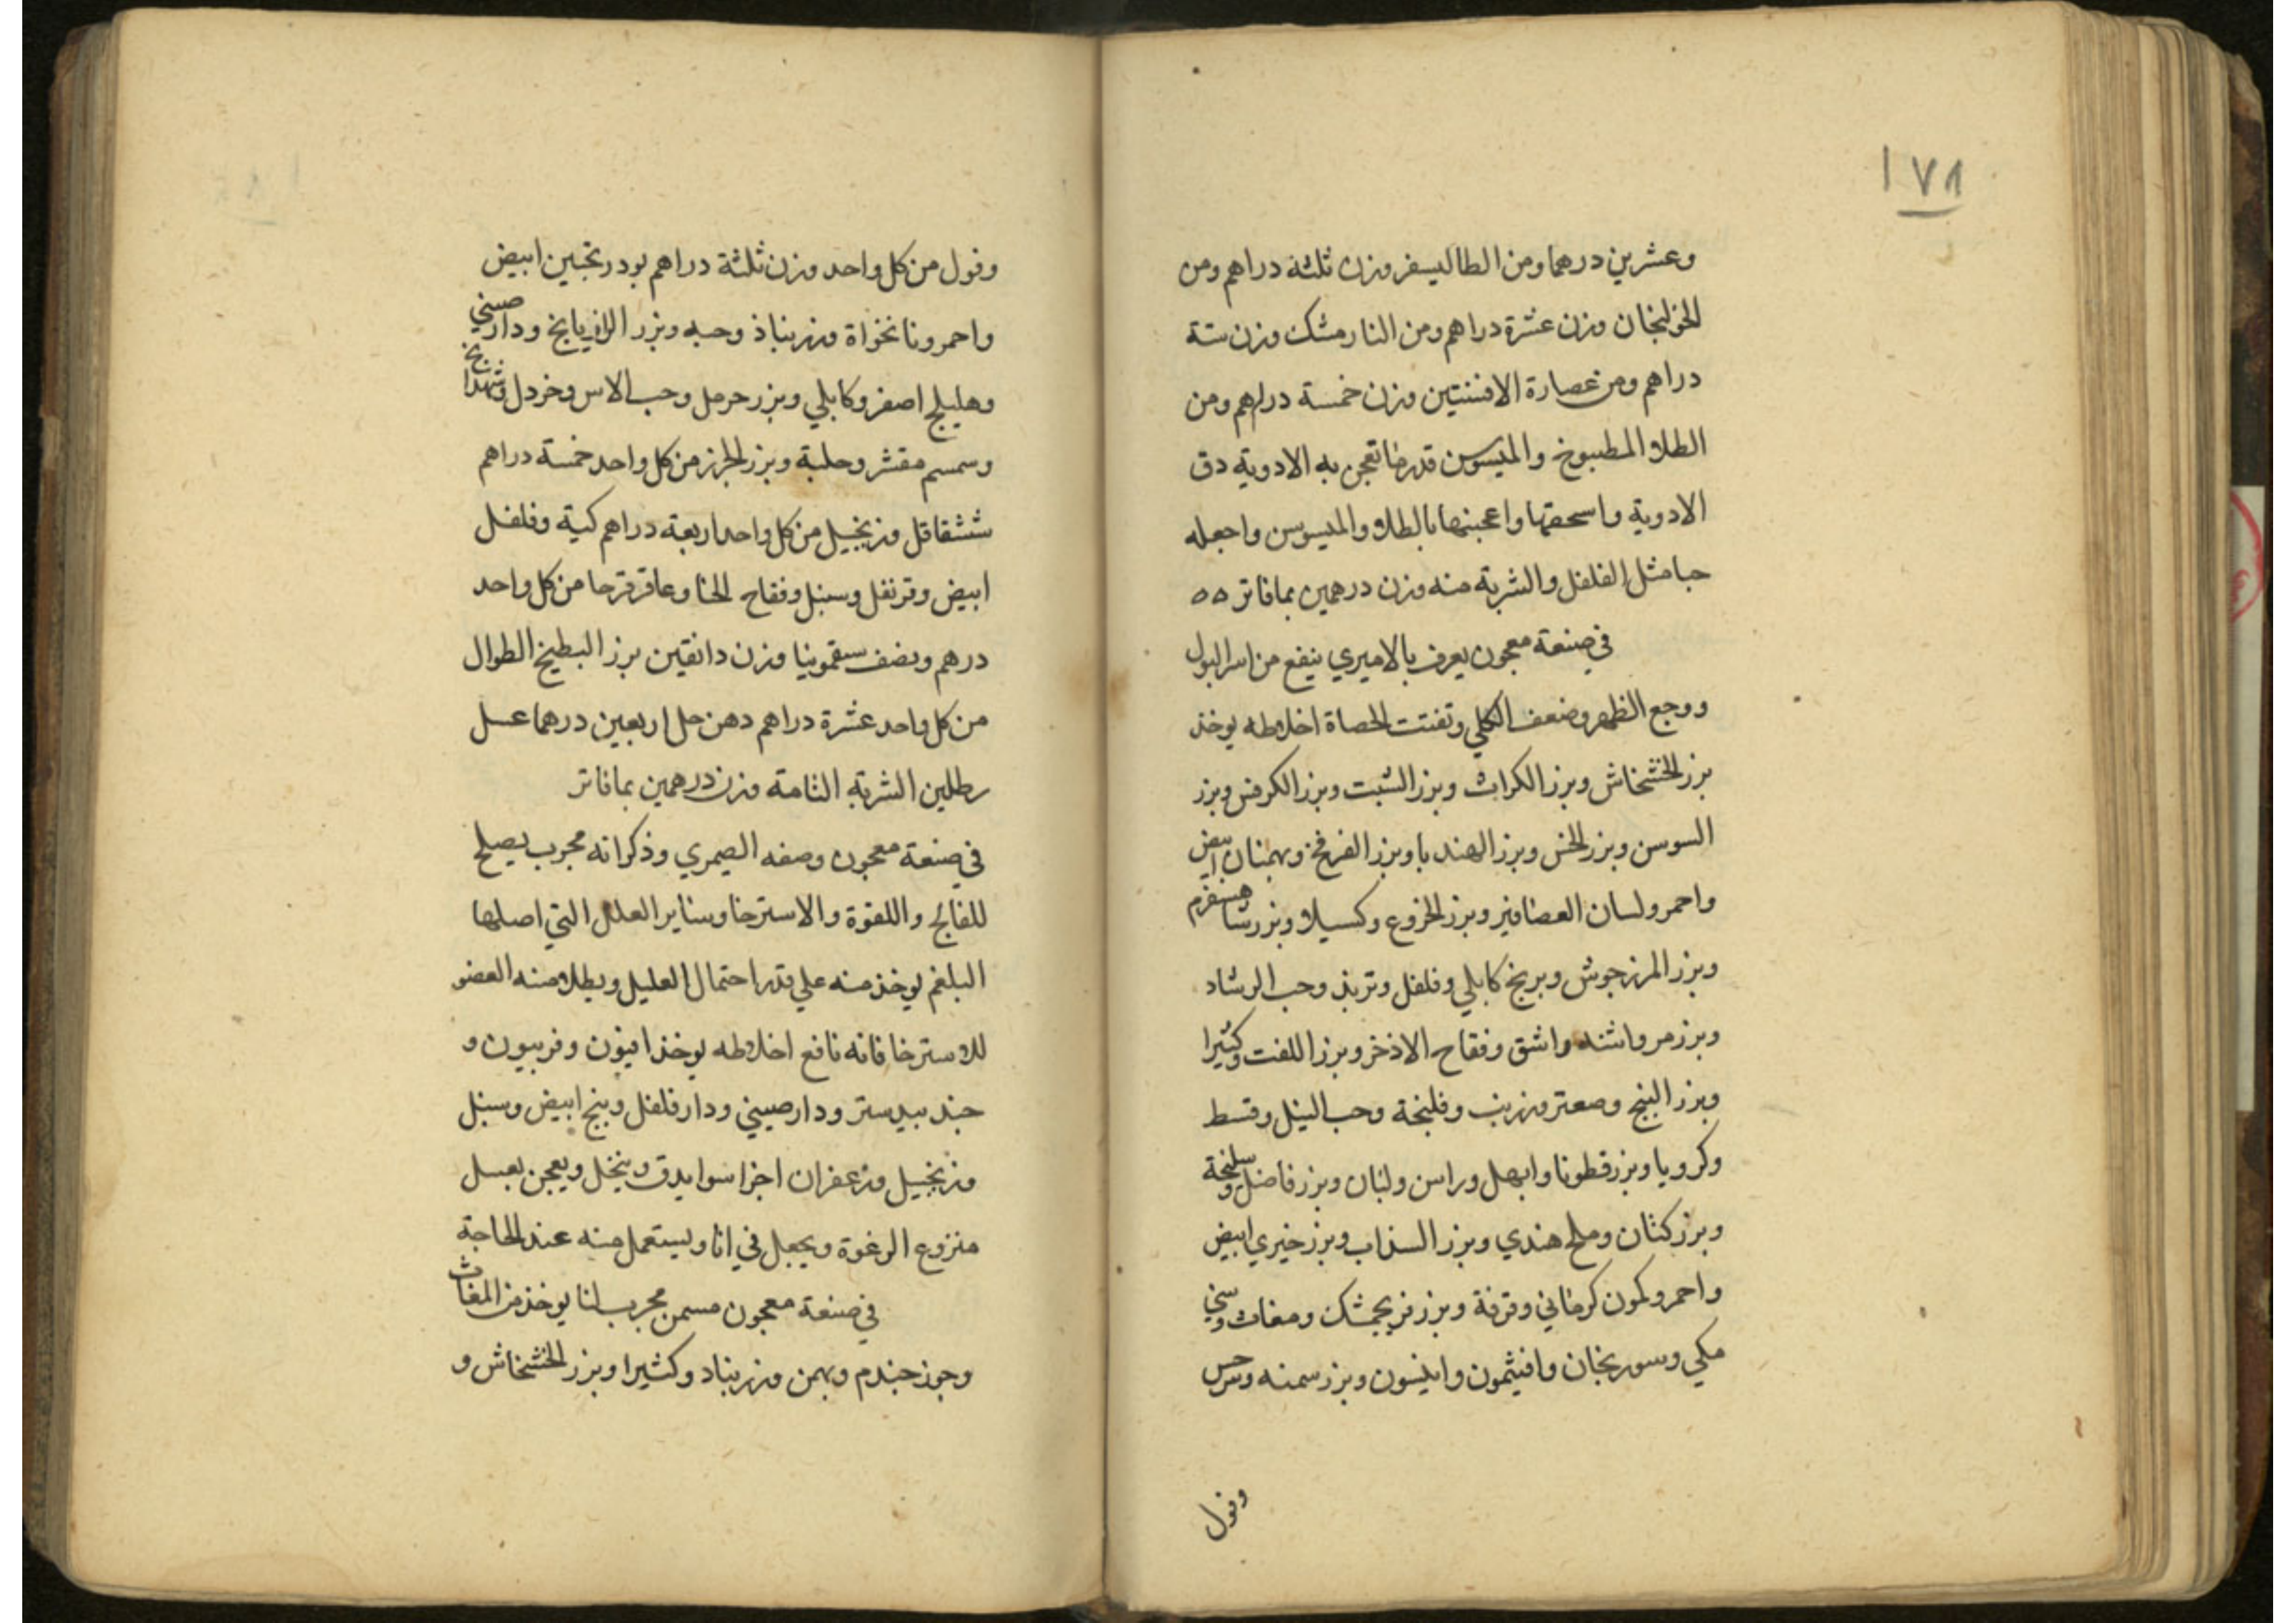 ١٧٨
وعشرين درهما ومن الطاليسفر وزن ثلثة دراهم ومن
الخولنجان وزن عشرة دراهم ومن النارمشك وزن ستة
دراهم ومن عصارة الافسنتين وزن خمسة دراهم ومن
الطلا المطبوخ والميسوسن قدر ما تعجن به الادوية دق
الادوية واسحقها واعجنها بالطلا والميسوسن واجعله
حبا مثل الفلفل والشربة منه وزن درهمين بما فاتر ٥٥
في صنعة معجون يعرف بالاميري ينفع من اسر البول
ووجع الظهر وضعف الكلي وتفتت الحصاة اخلاطه يوخذ
بزر الخشخاش وبزر الكراث وبزر الشبت وبزر الكرفس وبزر
السوسن وبزر الخس وبزر الهندبا وبزر الفرفخ وبهمنان ابيض
واحمر ولسان العصافير وبزر الخروع وكسيلا وبزر شاهسفرم
وبزر المرزجوش وبرنج كابلي وفلفل وتربذ وحب الرشاد
وبزر مرو اشنه واشق وفقاح الاذخر وبزر اللفت وكثيرا
وبزر البنج وصعتر وزرنب وفلنجة وحب النيل وقسط
وكرويا وبزر قطونا وابهل وراسن ولبان وبزر فاضل وسليخة
وبزر كتان وملح هندي وبزر السذاب وبزر خيري ابيض
واحمر وكمون كرماني وقرفة وبزر فرنجمشك ومغاث وسني
مكي وسورنجان وافيثمون وانيسون وبزر سمنه
وفول
وفول من كل واحد وزن ثلثة دراهم بودرنجين ابيض
واحمر ونانخواة وزرنباذ وحبه وبزر الرازيانج ودارصيني
وهليلج اصفر وكابلي وبزر حرمل وحب الاس وخردل وشهدانج
وسمسم مقشر وحلبة وبزر الجزر من كل واحد خمسة دراهم
ششقاقل وزنجبيل من كل واحد اربعة دراهم كية وفلفل
ابيض وقرنفل وسنبل وفقاح الحنا وعاقرقرحا من كل واحد
درهم ونصف سقمونيا وزن دانقين بزر البطيخ الطوال
من كل واحد عشرة دراهم دهن حل اربعين درهما عسل
رطلين الشربة التامة وزن درهمين بما فاتر
في صنعة معجون وصفه الصيمري وذكر انه مجرب يصلح
للفالج واللقوة والاسترخا وساير العلل التي اصلها
البلغم يوخذ منه علي قدر احتمال العليل ويطلا منه العضو
للاسترخا فانه نافع اخلاطه يوخذ افيون وفربيون و
جند بيدستر ودارصيني ودارفلفل وبنج ابيض وسنبل
وزنجبيل وزعفران اجزا سوا يدق وينخل ويعجن بعسل
منزوع الرغوة ويجعل في انا ويستعمل منه عند الحاجة
في صنعة معجون مسمن مجرب لنا يوخذ من المغاث
وجوز جندم وبهمن وزرنباد وكثيرا وبزر الخشخاش و